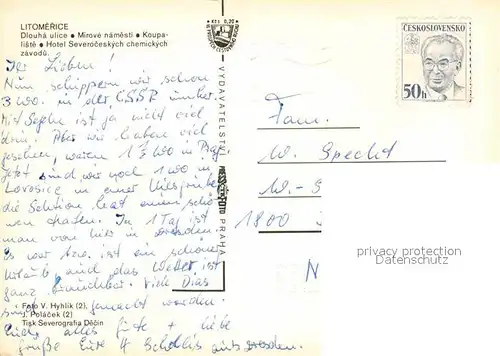 LITOMĚŘICE
Dlouhá ulice ● Mírové náměstí ● Koupa-
liště ● Hotel Severočeských chemických
závodů
Kčs 0,20
ČESKOSLOVENSKO
50h
Ihr Lieben!
Nun schippern wir schon
3 WO. in der ČSSR umher.
Mit Segeln ist ja nicht viel
drin. Aber wir haben viel
gesehen, waren 1 1/2 WO in Prag
Jetzt sind wir noch 1 WO in
Lovosice in einer Kiesgrube
die Sektion hat einen schö-
nen Hafen. In 1 Tag ist
man von hier in Dresden.
Es war bzw. ist ein schöner
Urlaub und das Wetter ist
ganz brauchbar. Viele Dias
sind gemacht worden.
Euch alles Gute + liebe
Grüße Eure 4 aus Dresden.
Foto V. Hyhlík (2),
J. Poláček (2)
Tisk Severografia Děčín
VYDAVATELSTVÍ PRESSFOTO PRAHA
Fam.
W. Specht
W.-S
1800
N
privacy protection
ansichtskarten-lexikon.de